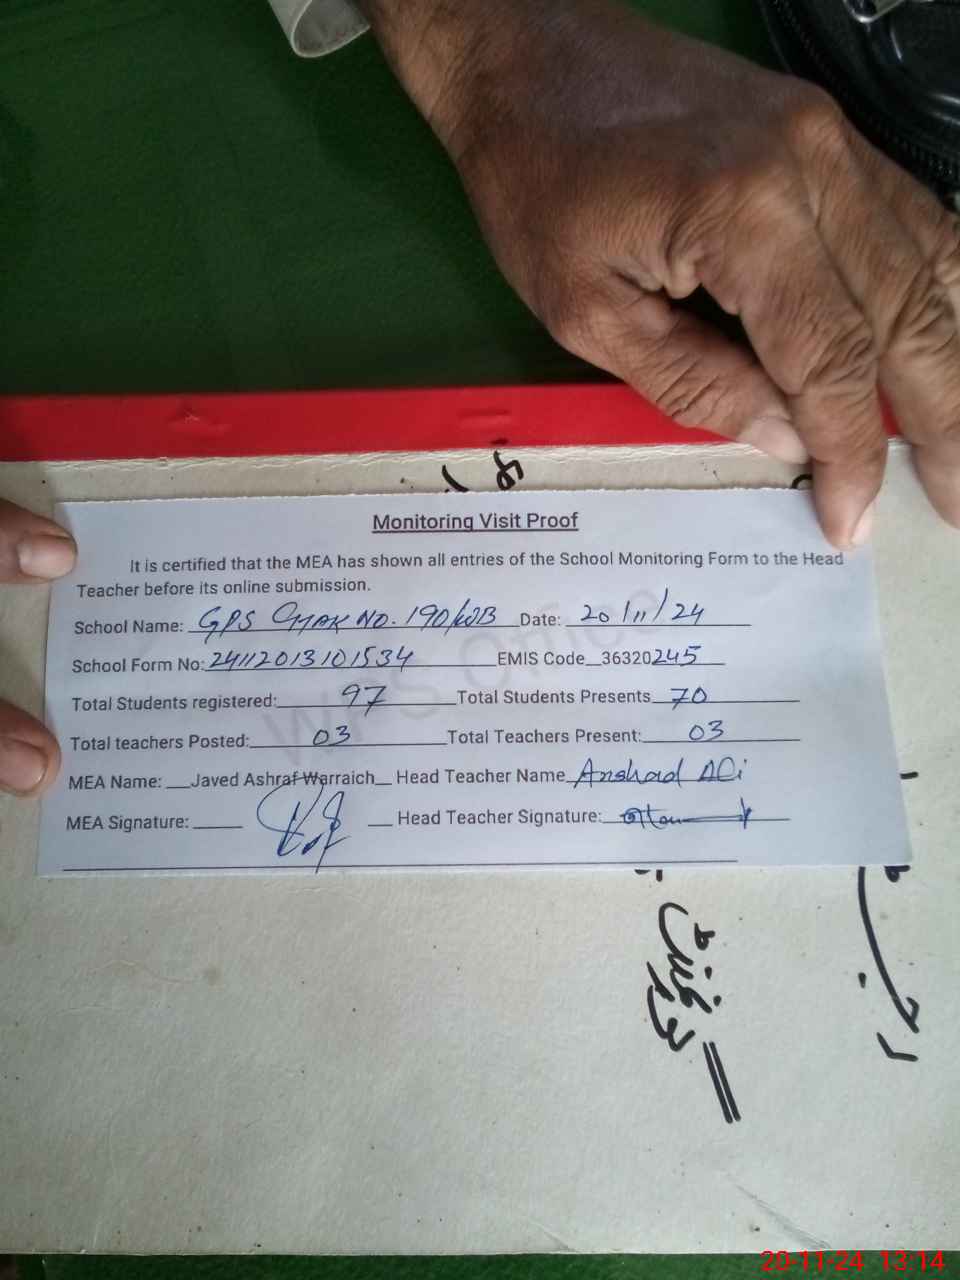 Monitoring Visit Proof
It is certified that the MEA has shown all entries of the School Monitoring Form to the Head
Teacher before its online submission.
School Name: GPS CHAK NO. 190/WB Date: 20/11/24
School Form No: 24112013101534 EMIS Code 36320245
Total Students registered: 97 Total Students Presents 70
Total teachers Posted: 03 Total Teachers Present: 03
MEA Name: Javed Ashraf Warraich Head Teacher Name Arshad Ali
MEA Signature: Head Teacher Signature:
WPS Office
20-11-24 13:14